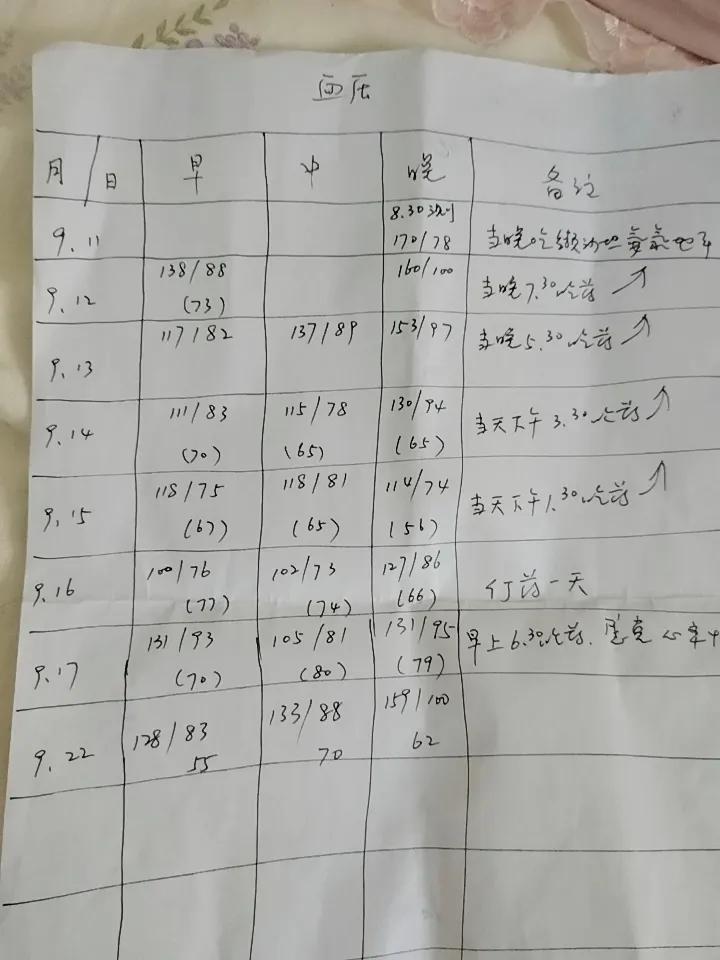 血压
月/日 早 中 晚 备注
8.30测
9.11 170/78 当晚吃缬沙坦氨氯地平
9.12 138/88 160/100 当晚7.30吃药
(73)
9.13 117/82 137/89 153/97 当晚5.30吃药
9.14 111/83 115/78 130/94 当天下午3.30吃药
(70) (65) (65)
9.15 118/75 118/81 114/74 当天下午1.30吃药
(67) (65) (56)
9.16 100/76 102/73 127/86 停药一天
(77) (74) (66)
9.17 131/93 105/81 131/95 早上6.30吃药.
(70) (80) (79)
9.22 128/83 133/88 159/100
55 70 62